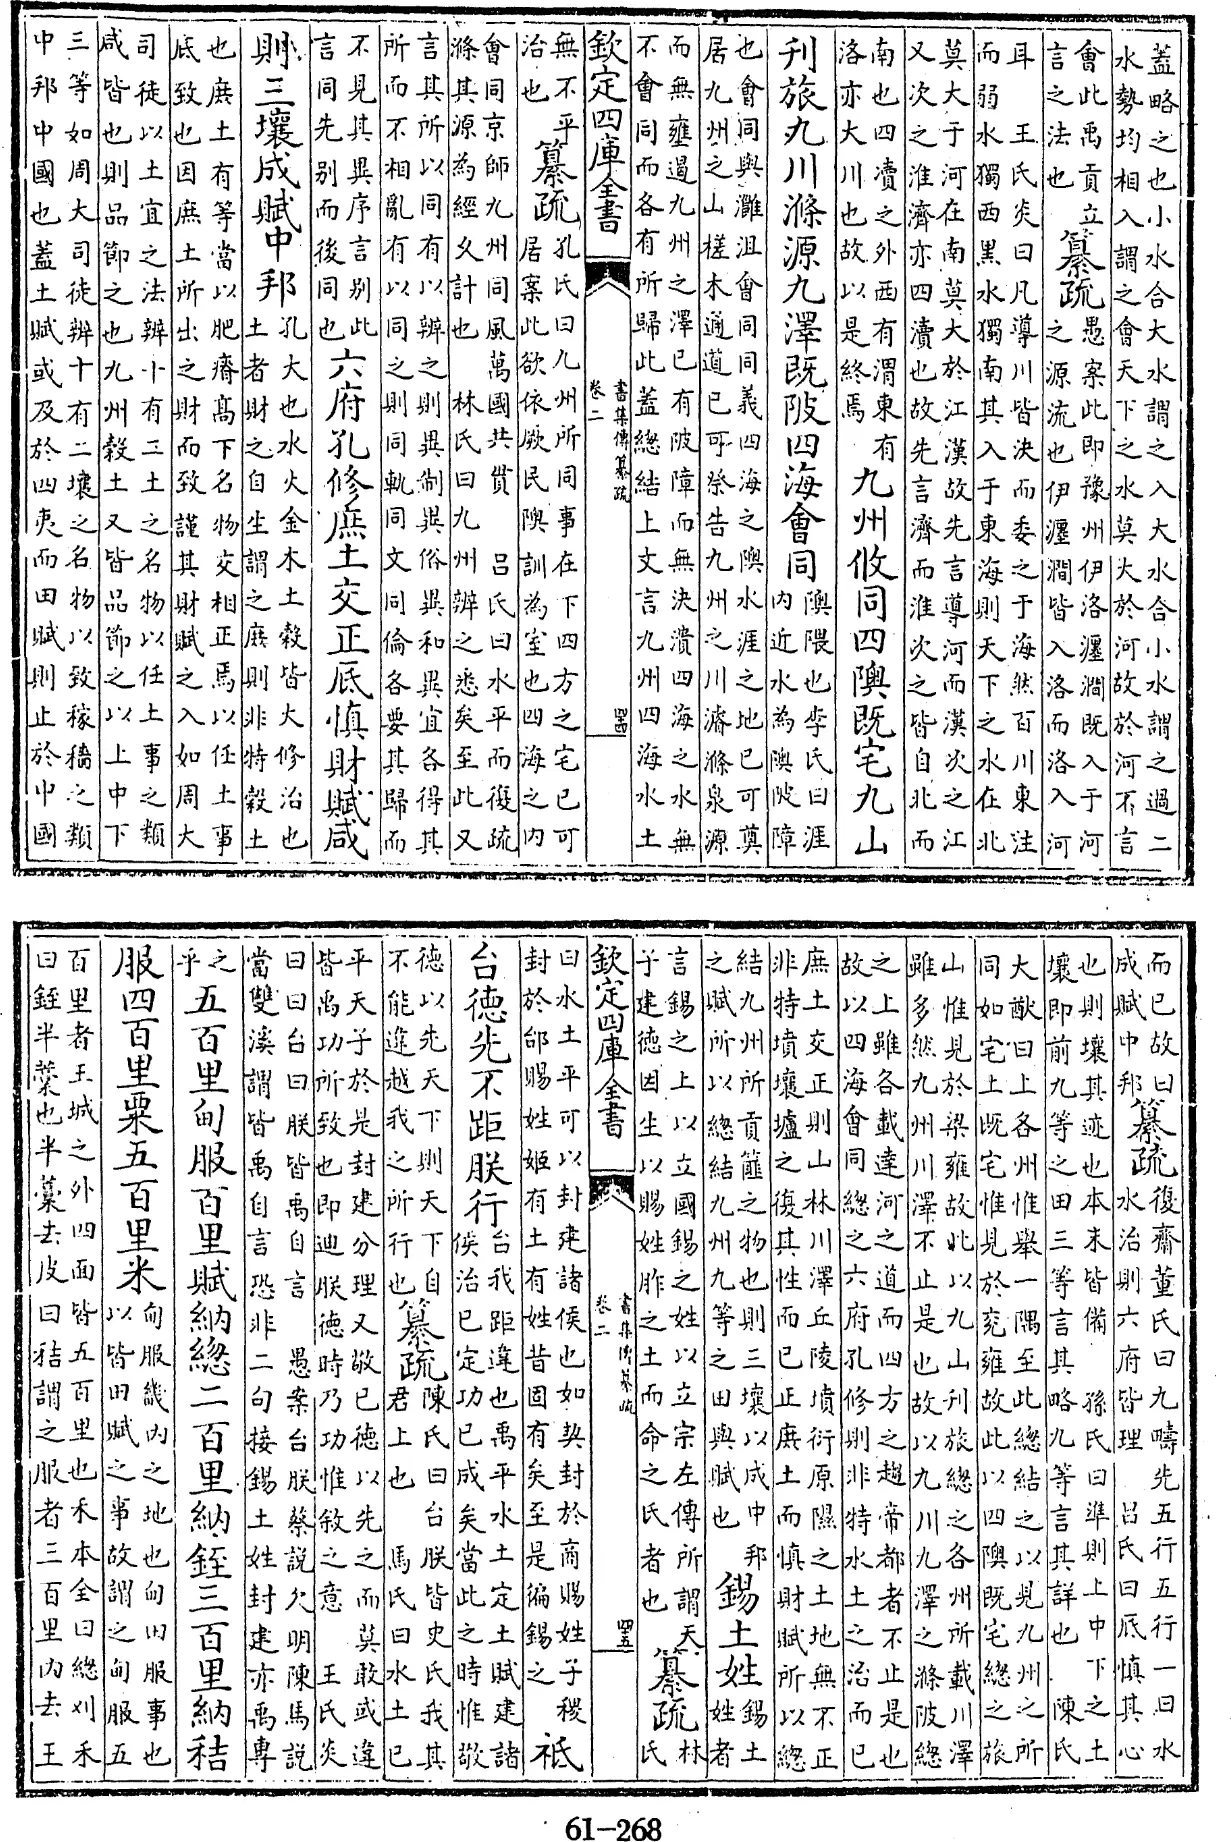 蓋略之也小水合大水謂之入大水合小水謂之過二
水勢均相入謂之會天下之水莫大於河故於河不言
會此禹貢立
言之法也
纂疏
愚案此即豫州伊洛瀍澗既入于河
之源流也伊瀍澗皆入洛而洛入河
耳 王氏炎曰凡導川皆決而委之于海然百川東注
而弱水獨西黑水獨南其入于東海則天下之水在北
莫大于河在南莫大於江漢故先言導河而漢次之江
又次之淮濟亦四瀆也故先言濟而淮次之皆自北而
南也四瀆之外西有渭東有
洛亦大川也故以是終焉
九州攸同四隩既宅九山
刋旅九川滌源九澤既陂四海會同
隩隈也李氏曰涯
内近水為隩陂障
也會同與灉沮會同同義四海之隩水涯之地已可奠
居九州之山槎木通道已可祭告九州之川濬滌泉源
而無壅遏九州之澤已有陂障而無決潰四海之水無
不會同而各有所歸此蓋總結上文言九州四海水土
欽定四庫全書
書集傳纂疏
卷二
四四
無不平
治也
纂疏
孔氏曰九州所同事在下四方之宅已可
居案此欲依厥民隩訓為室也四海之内
會同京師九州同風萬國共貫 吕氏曰水平而後疏
滌其源為經久計也 林氏曰九州辨之悉矣至此又
言其所以同有以辨之則異制異俗異和異宜各得其
所而不相亂有以同之則同軌同文同倫各要其歸而
不見其異序言别此
言同先别而後同也
六府孔修庶土交正厎慎財賦咸
則三壤成賦中邦
孔大也水火金木土穀皆大修治也
土者財之自生謂之庶則非特穀土
也庶土有等當以肥瘠髙下名物交相正焉以任土事
厎致也因庶土所出之財而致謹其財賦之入如周大
司徒以土宜之法辨十有二土之名物以任土事之類
咸皆也則品節之也九州穀土又皆品節之以上中下
三等如周大司徒辨十有二壤之名物以致稼穡之類
中邦中國也蓋土賦或及於四夷而田賦則止於中國
而已故曰
成賦中邦
纂疏
復齋董氏曰九疇先五行五行一曰水
水治則六府皆理 吕氏曰厎慎其心
也則壤其迹也本末皆備 孫氏曰準則上中下之土
壤即前九等之田三等言其略九等言其詳也 陳氏
大猷曰上各州惟舉一隅至此總結之以見九州之所
同如宅土既宅惟見於兖雍故此以四隩既宅總之旅
山惟見於梁雍故此以九山刋旅總之各州所載川澤
雖多然九州川澤不止是也故以九川九澤之滌陂總
之上雖各載達河之道而四方之趨帝都者不止是也
故以四海會同總之六府孔修則非特水土之治而已
庶土交正則山林川澤丘陵墳衍原隰之土地無不正
非特墳壤壚之復其性而已正庶土而慎財賦所以總
結九州所貢篚之物也則三壤以成中邦
之賦所以總結九州九等之田與賦也
錫土姓
錫土
姓者
言錫之上以立國錫之姓以立宗左傳所謂天
子建德因生以賜姓胙之土而命之氏者也
纂疏
林
氏
欽定四庫全書
書集傳纂疏
卷二
四五
曰水土平可以封建諸侯也如契封於商賜姓子稷
封於邰賜姓姬有土有姓昔固有矣至是徧錫之
祗
台德先不距朕行
台我距違也禹平水土定土賦建諸
侯治已定功已成矣當此之時惟敬
德以先天下則天下自
不能違越我之所行也
纂疏
陳氏曰台朕皆史氏我其
君上也 馬氏曰水土已
平天子於是封建分理又敬已德以先之而莫敢或違
皆禹功所致也即迪朕德時乃功惟敘之意 王氏炎
曰曰台曰朕皆禹自言 愚案台朕蔡說欠明陳馬說
當雙溪謂皆禹自言恐非二句接錫土姓封建亦禹專
之
乎
五百里甸服百里賦納緫二百里納銍三百里納秸
服四百里粟五百里米
甸服畿内之地也甸田服事也
以皆田賦之事故謂之甸服五
百里者王城之外四面皆五百里也禾本全曰緫刈禾
曰銍半藁也半藁去皮曰秸謂之服者三百里内去王
61-268